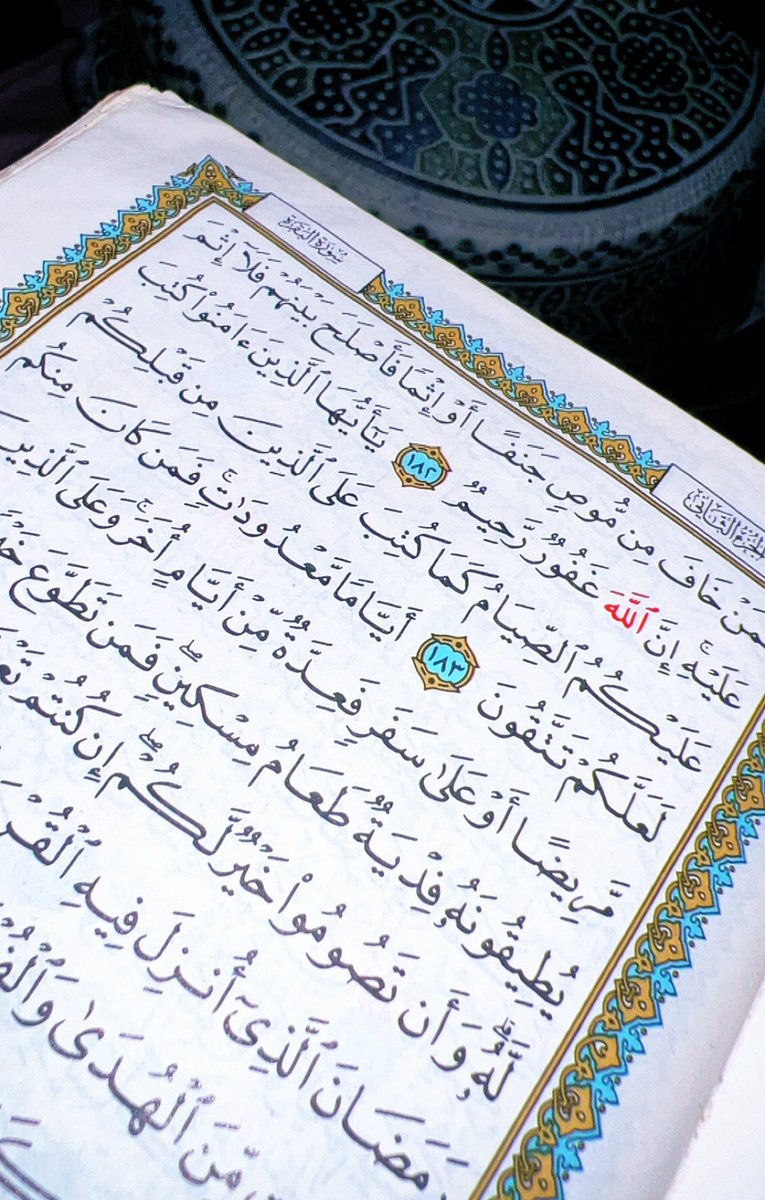 سُورَةُ البَقَرَة
الجُزْءُ الثَّانِي
مَنْ خَافَ مِن مُّوصٍ جَنَفًا أَوْ إِثْمًا فَأَصْلَحَ بَيْنَهُمْ فَلَآ إِثْمَ
عَلَيْهِۚ إِنَّ ٱللَّهَ غَفُورٌ رَّحِيمٌ ١٨٢ يَٰٓأَيُّهَا ٱلَّذِينَ ءَامَنُوا۟ كُتِبَ
عَلَيْكُمُ ٱلصِّيَامُ كَمَا كُتِبَ عَلَى ٱلَّذِينَ مِن قَبْلِكُمْ
لَعَلَّكُمْ تَتَّقُونَ ١٨٣ أَيَّامًا مَّعْدُودَٰتٍۚ فَمَن كَانَ مِنكُم
مَّرِيضًا أَوْ عَلَىٰ سَفَرٍ فَعِدَّةٌ مِّنْ أَيَّامٍ أُخَرَۚ وَعَلَى ٱلَّذِينَ
يُطِيقُونَهُۥ فِدْيَةٌ طَعَامُ مِسْكِينٍۖ فَمَن تَطَوَّعَ
لَّهُۥۚ وَأَن تَصُومُوا۟ خَيْرٌ لَّكُمْۖ إِن كُنتُمْ
رَمَضَانَ ٱلَّذِىٓ أُنزِلَ فِيهِ ٱلْقُرْ
مِّنَ ٱلْهُدَىٰ